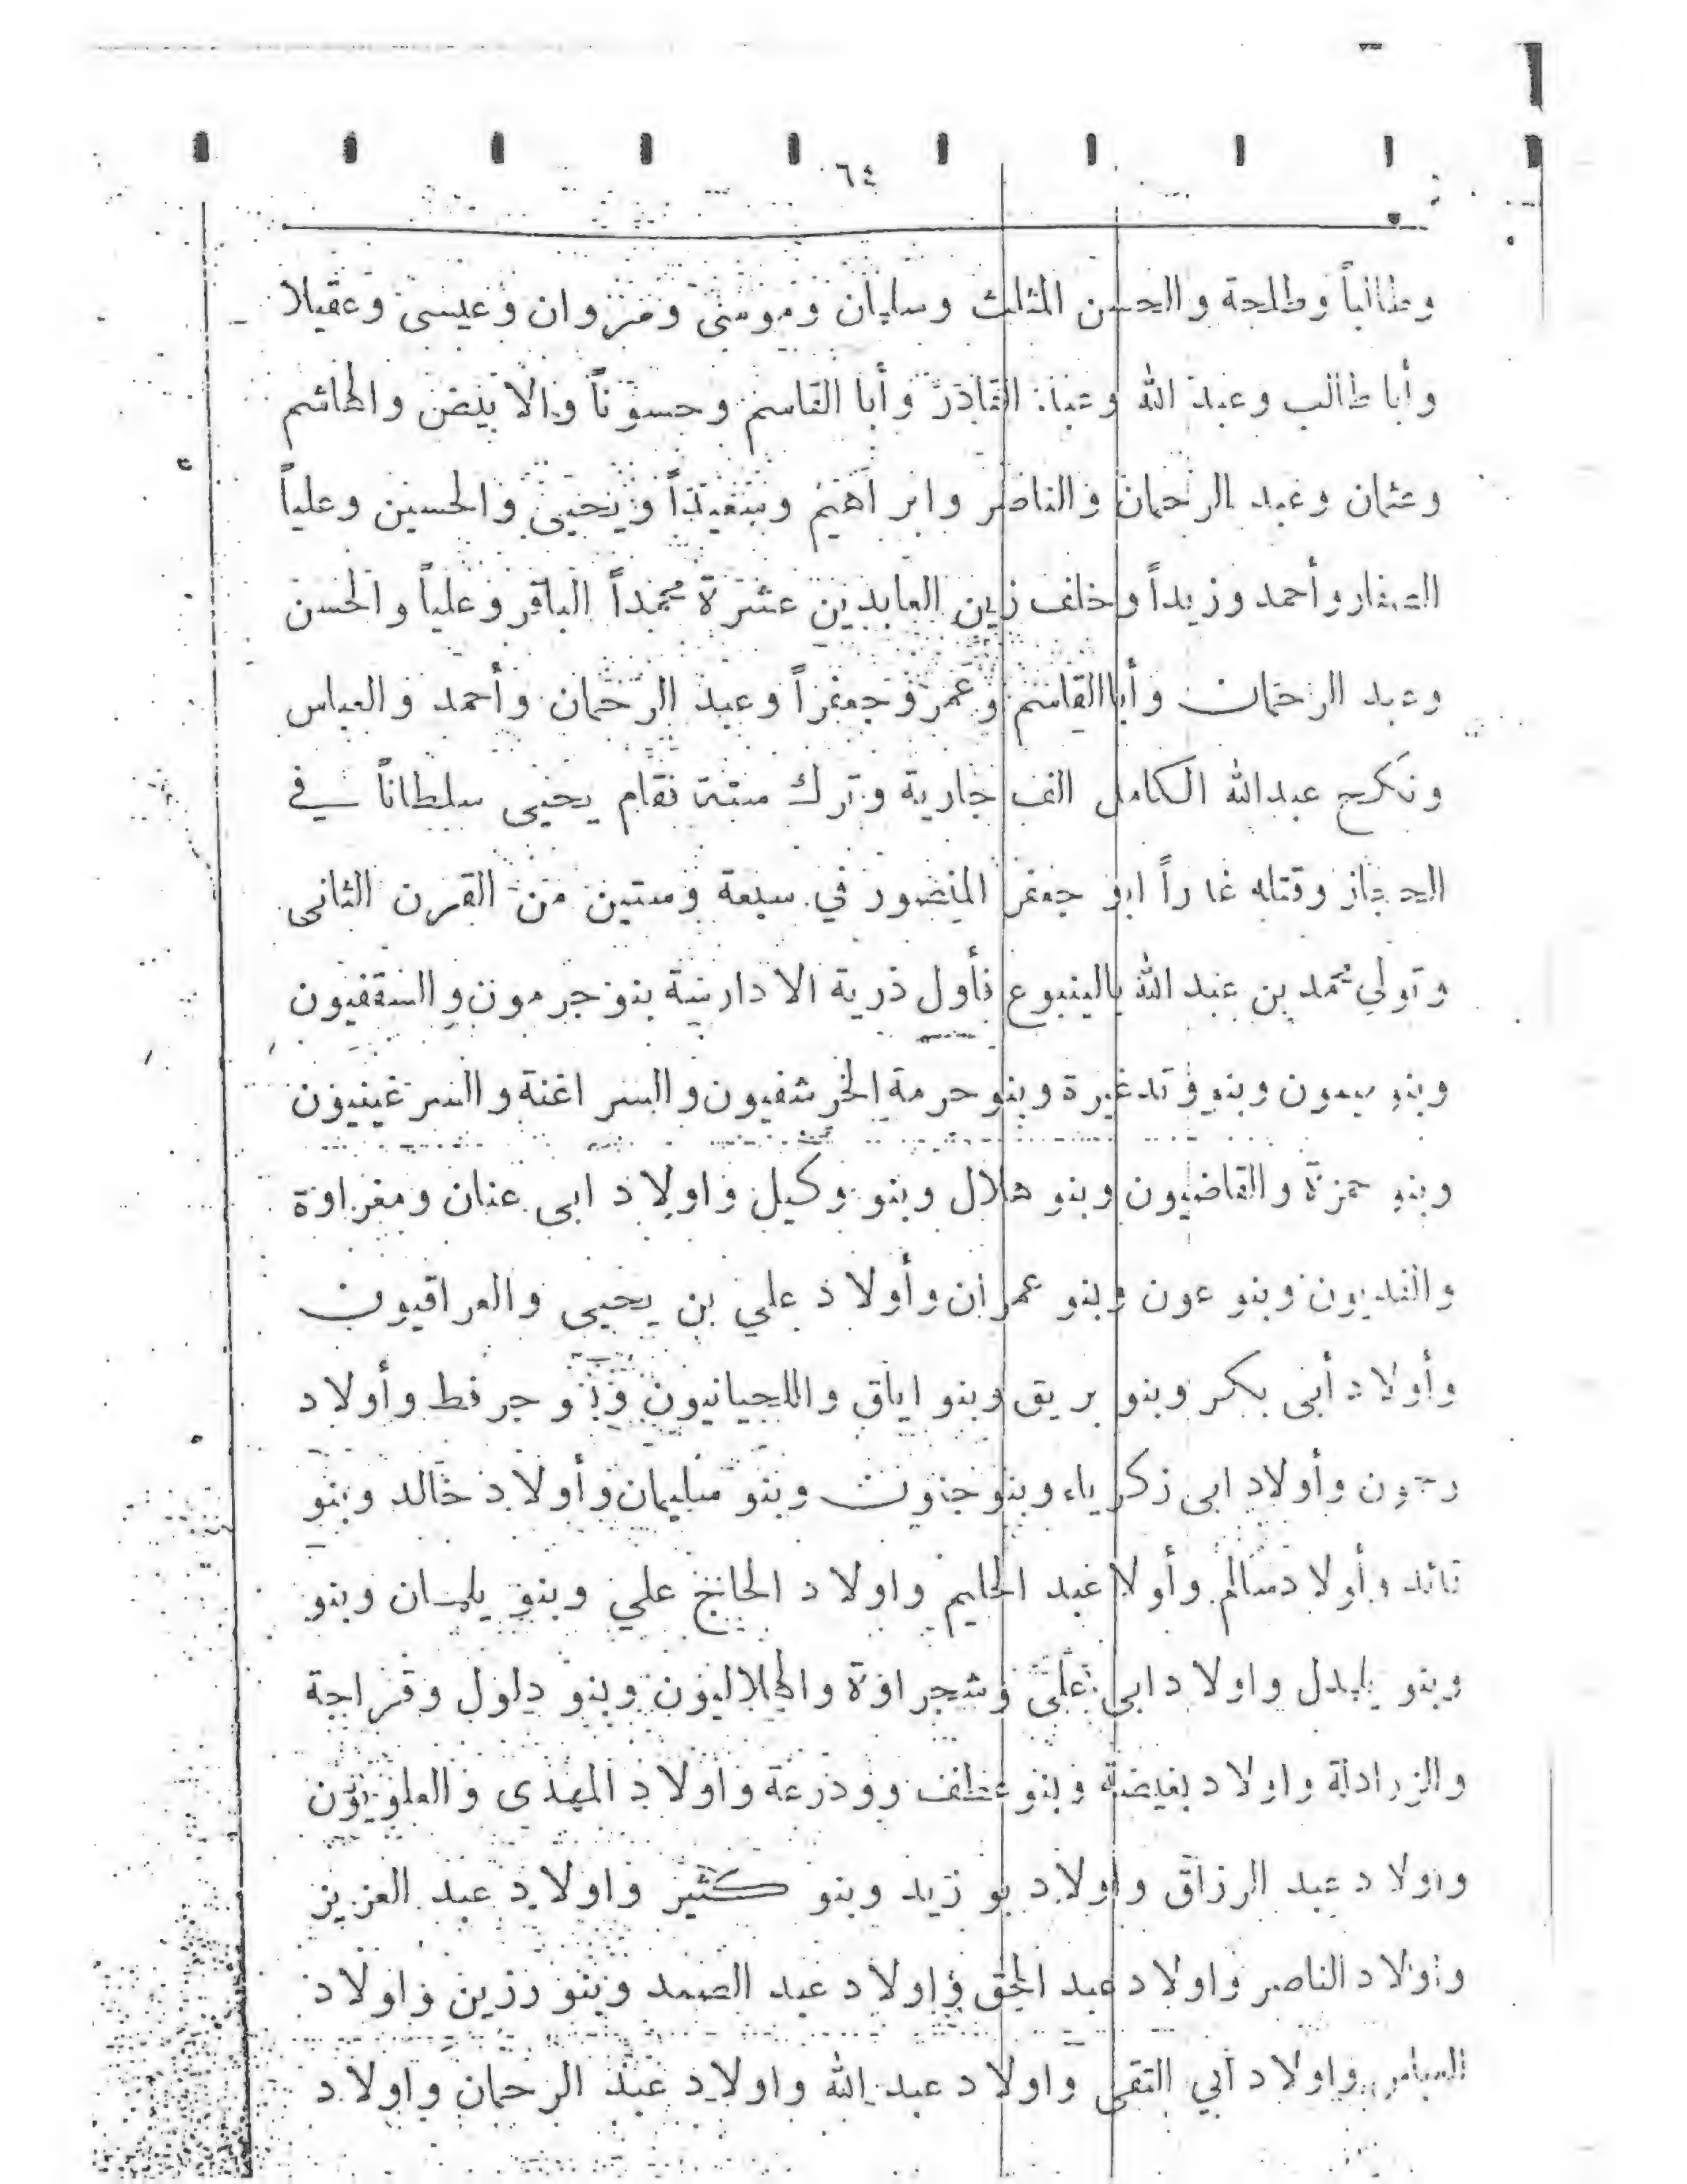 ٦٤
وطالباً وطلحة والحسن المثلث وسليمان وموسى ومزوان وعيسى وعقيلا
وأبا طالب وعبد الله وعبد القادر وأبا القاسم وحسوناً والابيض والهاشم
وعثمان وعبد الرحمان والناصر وابراهيم وسعيداً ويحيى والحسين وعلياً
الصغار وأحمد وزيداً وخلف زين العابدين عشرة محمداً الباقر وعلياً والحسن
وعبد الرحمان وأبا القاسم وعمر وجعفراً وعبد الرحمان وأحمد والعباس
ونكح عبدالله الكامل الف جارية وترك ستة فقام يحيى سلطاناً في
الحجاز وقتله غدراً ابو جعفر المنصور في سبعة وستين من القرن الثانى
وتولى محمد بن عبد الله بالينبوع فأول ذرية الادارسة بنو جرمون والسقفيون
وبنو ميمون وبنو وتدغيرة وبنو حرمة الخرشفيون والسراغنة والسرغينيون
وبنو حمزة والقاضيون وبنو هلال وبنو وكيل واولاد ابى عنان ومغراوة
وبنو عون وبنو عمران وأولاد علي بن يحيى والعراقيون
وأولاد أبى بكر وبنو بريق وبنو اياق واللجيانيون وبنو جرفط وأولاد
رحون وأولاد ابى زكرياء وبنو جنون وبنو سليمان وأولاد خالد وبنو
قائد وأولاد سالم وأولا عبد الحليم واولاد الحاج علي وبنو يلمسان وبنو
وبنو يلبدل واولاد ابى على وشجراوة والهلاليون وبنو دلول وقراجة
والزرادلة واولاد بغيضة وبنو عطف وودرعة واولاد المهدى والعلويون
واولاد عبد الرزاق واولاد بو زيد وبنو كثير واولاد عبد العزيز
واولاد الناصر واولاد عبد الحق واولاد عبد الصمد وبنو رزين واولاد
العباس واولاد أبي التقى واولاد عبد الله واولاد عبد الرحمان واولاد